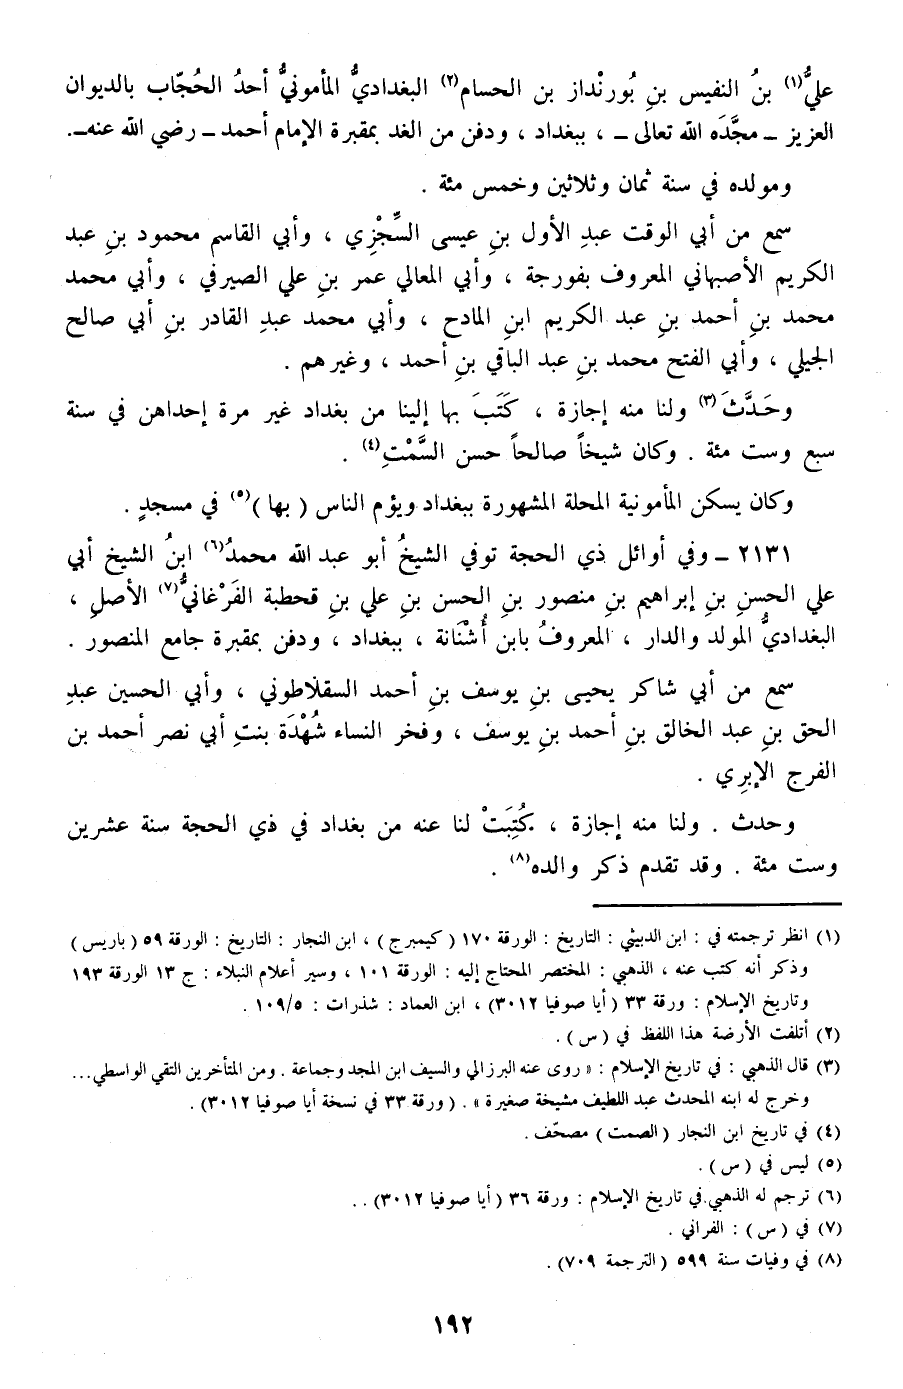 عليُّ(١) بنُ النفيس بنِ بُورنْداز بن الحسام(٢) البغداديُّ المأمونيُّ أحدُ الحُجّاب بالديوان
العزيز ــ مجَّدَه الله تعالى ــ ، ببغداد ، ودفن من الغد بمقبرة الإمام أحمد ــ رضي الله عنه ــ.
ومولده في سنة ثمان وثلاثين وخمس مئة .
سمع من أبي الوقت عبدِ الأول بنِ عيسى السِّجْزي ، وأبي القاسم محمود بنِ عبد
الكريم الأصبهاني المعروف بفورجة ، وأبي المعالي عمر بنِ علي الصيرفي ، وأبي محمد
محمد بنِ أحمد بنِ عبد الكريم ابنِ المادح ، وأبي محمد عبدِ القادر بنِ أبي صالح
الجيلي ، وأبي الفتح محمد بنِ عبد الباقي بنِ أحمد ، وغيرهم .
وحَدَّثَ(٣) ولنا منه إجازة ، كَتَبَ بها إلينا من بغداد غير مرة إحداهن في سنة
سبع وست مئة . وكان شيخاً صالحاً حسن السَّمْتِ(٤) .
وكان يسكن المأمونية المحلة المشهورة ببغداد ويؤم الناس ( بها )(٥) في مسجدٍ .
٢١٣١ ــ وفي أوائل ذي الحجة توفي الشيخُ أبو عبد الله محمدُ(٦) ابنُ الشيخ أبي
علي الحسنِ بنِ إبراهيم بنِ منصور بنِ الحسن بنِ علي بنِ قحطبة الفَرْغانيُّ(٧) الأصلِ ،
البغداديُّ المولد والدار ، المعروفُ بابن أُشْنَانة ، ببغداد ، ودفن بمقبرة جامع المنصور .
سمع من أبي شاكر يحيى بنِ يوسف بنِ أحمد السقلاطوني ، وأبي الحسين عبدِ
الحق بنِ عبد الخالق بنِ أحمد بنِ يوسف ، وفخر النساء شُهْدَة بنتِ أبي نصر أحمد بن
الفرج الإبرِي .
وحدث . ولنا منه إجازة ، كُتِبَتْ لنا عنه من بغداد في ذي الحجة سنة عشرين
وست مئة . وقد تقدم ذكر والده(٨) .
(١) انظر ترجمته في : ابن الدبيثي : التاريخ : الورقة ١٧٠ ( كيمبرج ) ، ابن النجار : التاريخ : الورقة ٥٩ ( باريس )
وذكر أنه كتب عنه ، الذهبي : المختصر المحتاج إليه : الورقة ١٠١ ، وسير أعلام النبلاء : ج ١٣ الورقة ١٩٣
وتاريخ الإسلام : ورقة ٣٣ ( أيا صوفيا ٣٠١٢ ) ، ابن العماد : شذرات : ١٠٩/٥ .
(٢) أتلفت الأرضة هذا اللفظ في ( س ) .
(٣) قال الذهبي : في تاريخ الإسلام : « روى عنه البرزالي والسيف ابن المجد وجماعة . ومن المتأخرين التقي الواسطي...
وخرج له ابنه المحدث عبد اللطيف مشيخة صغيرة » . ( ورقة ٣٣ في نسخة أيا صوفيا ٣٠١٢ ) .
(٤) في تاريخ ابن النجار ( الصمت ) مصحّف .
(٥) ليس في ( س ) .
(٦) ترجم له الذهبي في تاريخ الإسلام : ورقة ٣٦ ( أيا صوفيا ٣٠١٢ ) . .
(٧) في ( س ) : الفراني .
(٨) في وفيات سنة ٥٩٩ ( الترجمة ٧٠٩ ) .
١٩٢